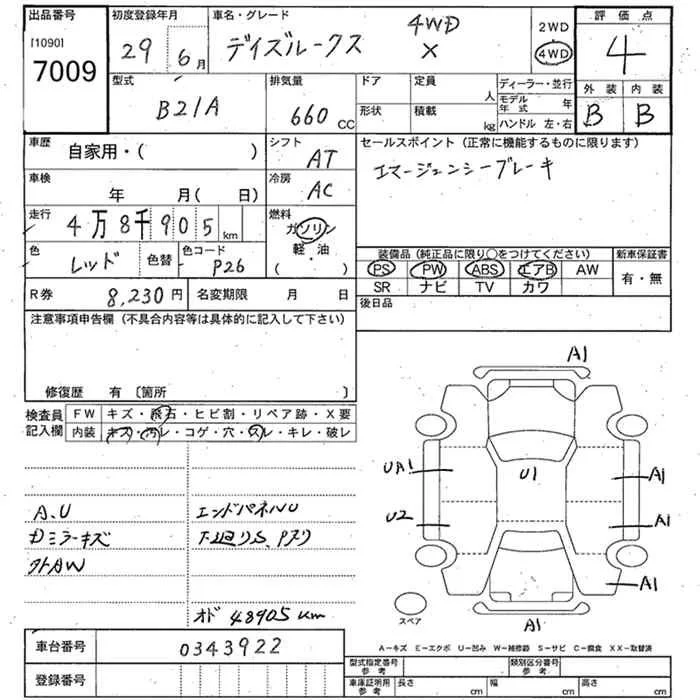 出品番号
[1090]
7009
初度登録年月
29 6月
車名・グレード
デイズルークス 4WD X
2WD
4WD
評価点
4
外装 内装
B B
型式
B21A
排気量
660 CC
ドア
定員
人
形状
積載
kg
ディーラー・並行
モデル年式 年
ハンドル 左・右
車歴
自家用・( )
シフト
AT
セールスポイント(正常に機能するものに限ります)
エマージェンシーブレーキ
車検
年 月(日)
冷房
AC
走行
4万8千905 km
燃料
ガソリン
軽・油
( )
色
レッド
色替
色コード
P26
装備品(純正品に限り○をつけてください)
新車保証書
PS PW ABS エアB AW
SR ナビ TV カワ
有・無
R券
8,230円
名変期限 月 日
後日品
注意事項申告欄(不具合内容等は具体的に記入して下さい)
修復歴 有〔箇所 〕
検査員記入欄
FW キズ・飛石・ヒビ割・リペア跡・X要
内装 キズ・汚レ・コゲ・穴・スレ・キレ・破レ
A1
UA1
U1
A1
U2
A1
A1
A1
スペア
A.U
ドミラーキズ
外AW
エンドパネルU
下廻りS、Pヌリ
オド 48905km
A-キズ E-エクボ U-凹み W-補修跡 S-サビ C-腐食 XX-取替済
車台番号
0343922
登録番号
型式指定番号参考
類別区分番号参考
車庫証明用参考
長さ cm
幅 cm
高さ cm